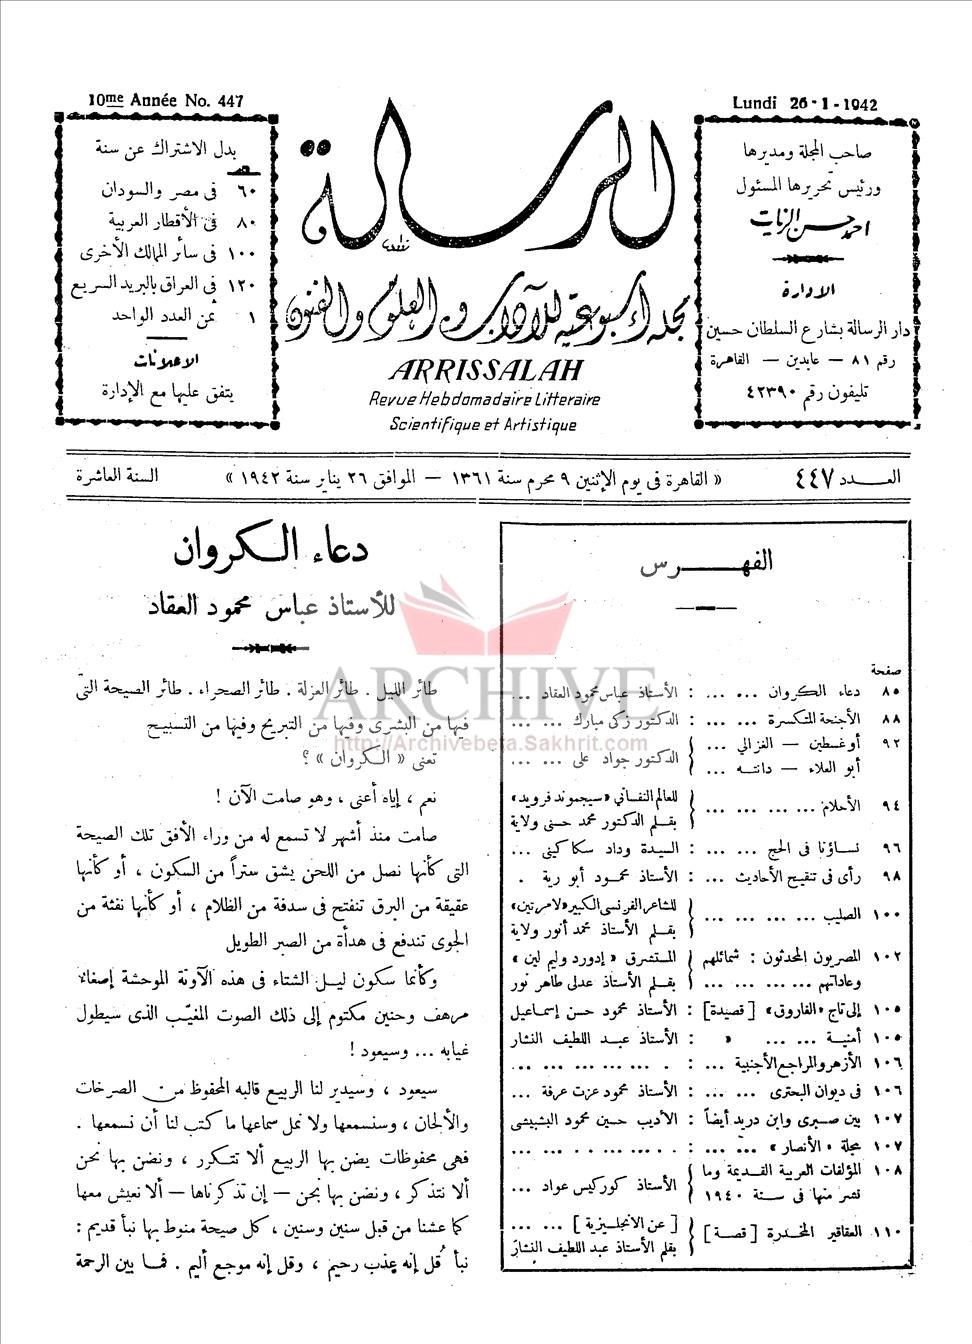 10me Année No. 447
Lundi 26-1-1942
صاحب المجلة ومديرها
ورئيس تحريرها المسئول
احمد حسن الزيات
الادارة
دار الرسالة بشارع السلطان حسين
رقم ٨١ — عابدين — القاهرة
تليفون رقم ٤٢٣٩٠
الرسالة
مجلة أسبوعية للآداب والعلوم والفنون
ARRISSALAH
Revue Hebdomadaire Litteraire
Scientifique et Artistique
بدل الاشتراك عن سنة
٦٠ فى مصر والسودان
٨٠ فى الأقطار العربية
١٠٠ فى سائر الممالك الأخرى
١٢٠ فى العراق بالبريد السريع
١ ثمن العدد الواحد
الاعلانات
يتفق عليها مع الإدارة
العـــدد ٤٤٧ « القاهرة فى يوم الإثنين ٩ محرم سنة ١٣٦١ — الموافق ٢٦ يناير سنة ١٩٤٢ » السنة العاشرة
الفهـــــرس
صفحة
٨٥ دعاء الكروان ... ... ... : الأستاذ عباس محمود العقاد ...
٨٨ الأجنحة المتكسرة ... ... : الدكتور زكى مبارك ... ...
٩٢ أوغسطين — الغزالي ...
أبو العلاء — دانتـــه ... } الدكتور جواد على ... ...
٩٤ الأحلام ... ... ... ... } للعالم النفسانى «سيجموند فرويد»
بقلم الدكتور محمد حسنى ولاية
٩٦ نساؤنا فى الحج ... ... : السيدة وداد سكاكينى ...
٩٨ رأى فى تنقيح الأحاديث ... : الأستاذ محمود أبو رية .
١٠٠ الصليب ... ... ... ... } للشاعر الفرنسى الكبير «لامرتين»
بقلم الأستاذ محمد أنور ولاية
١٠٢ المصريون المحدثون : شمائلهم
وعاداتهم ... ... ... ... } المستشرق « إدورد وليم لين »
بقلم الأستاذ عدلى طاهر نور
١٠٥ إلى تاج «الفاروق» [ قصيدة ] : الأستاذ محمود حسن إسماعيل
١٠٥ أمنية ... ... ... « : الأستاذ عبد اللطيف النشار
١٠٦ الأزهر والمراجع الأجنبية ... : . ... ... ... ... ...
١٠٦ فى ديوان البحترى ... ... : الأستاذ محمود عزت عرفة ...
١٠٧ بين صبرى وابن دريد أيضاً : الأديب حسين محمود البشبيشى
١٠٧ مجلة « الأنصار » ... ... : . ... ... .. ... ...
١٠٨ المؤلفات العربية القديمة وما
نشر منها فى سنة ١٩٤٠ } الأستاذ كوركيس عواد ...
١١٠ العقاقير المخدرة [ قصة ] } [ عن الانجليزية ] ... ...
بقلم الأستاذ عبد اللطيف النشار
دعاء الـكروان
للأستاذ عباس محمود العقاد
طائر الليل . طائر العزلة . طائر الصحراء . طائر الصيحة التى
فيها من البشرى وفيها من التبريح وفيها من التسبيح
تعنى « الـكروان » ؟
نعم ، إياه أعنى ، وهو صامت الآن !
صامت منذ أشهر لا تسمع له من وراء الأفق تلك الصيحة
التى كأنها نصل من اللحن يشق ستراً من السكون ، أو كأنها
عقيقة من البرق تنفتح فى سدفة من الظلام ، أو كأنها نفثة من
الجوى تندفع فى هدأة من الصبر الطويل
وكأنما سكون ليـل الشتاء فى هذه الآونة الموحشة إصغاء
مرهف وحنين مكتوم إلى ذلك الصوت المغيّب الذى سيطول
غيابه ... وسيعود !
سيعود ، وسيدير لنا الربيع قالبه المحفوظ من الصرخات
والألحان ، وسنسمعها ولا نمل سماعها ما كتب لنا أن نسمعها .
فهى محفوظات يضن بها الربيع ألا تتكرر ، ونضن بها نحن
ألا نتذكر ، ونضن بها نحن — إن تذكرناها — ألا نعيش معها
كما عشنا من قبل سنين وسنين ، كل صيحة منوط بها نبأ قديم :
نبأ قُل إنه عذب رحيم ، وقل إنه موجع أليم . فما بين الرحمة
ARCHIVE
http://Archivebeta.Sakhrit.com